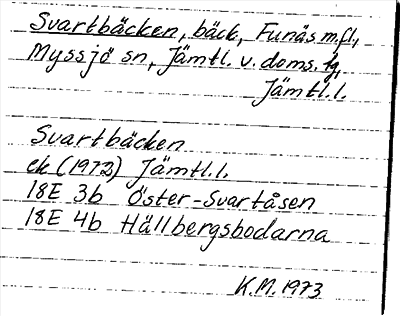 Svartbäcken, bäck, Funäs m.fl.,
Myssjö sn, Jämtl. v. doms. tg,
Jämtl.l.
Svartbäcken
ek (1973) Jämtl.l.
18E 3b Öster-Svartåsen
18E 4b Hällbergsbodarna
K.M. 1973